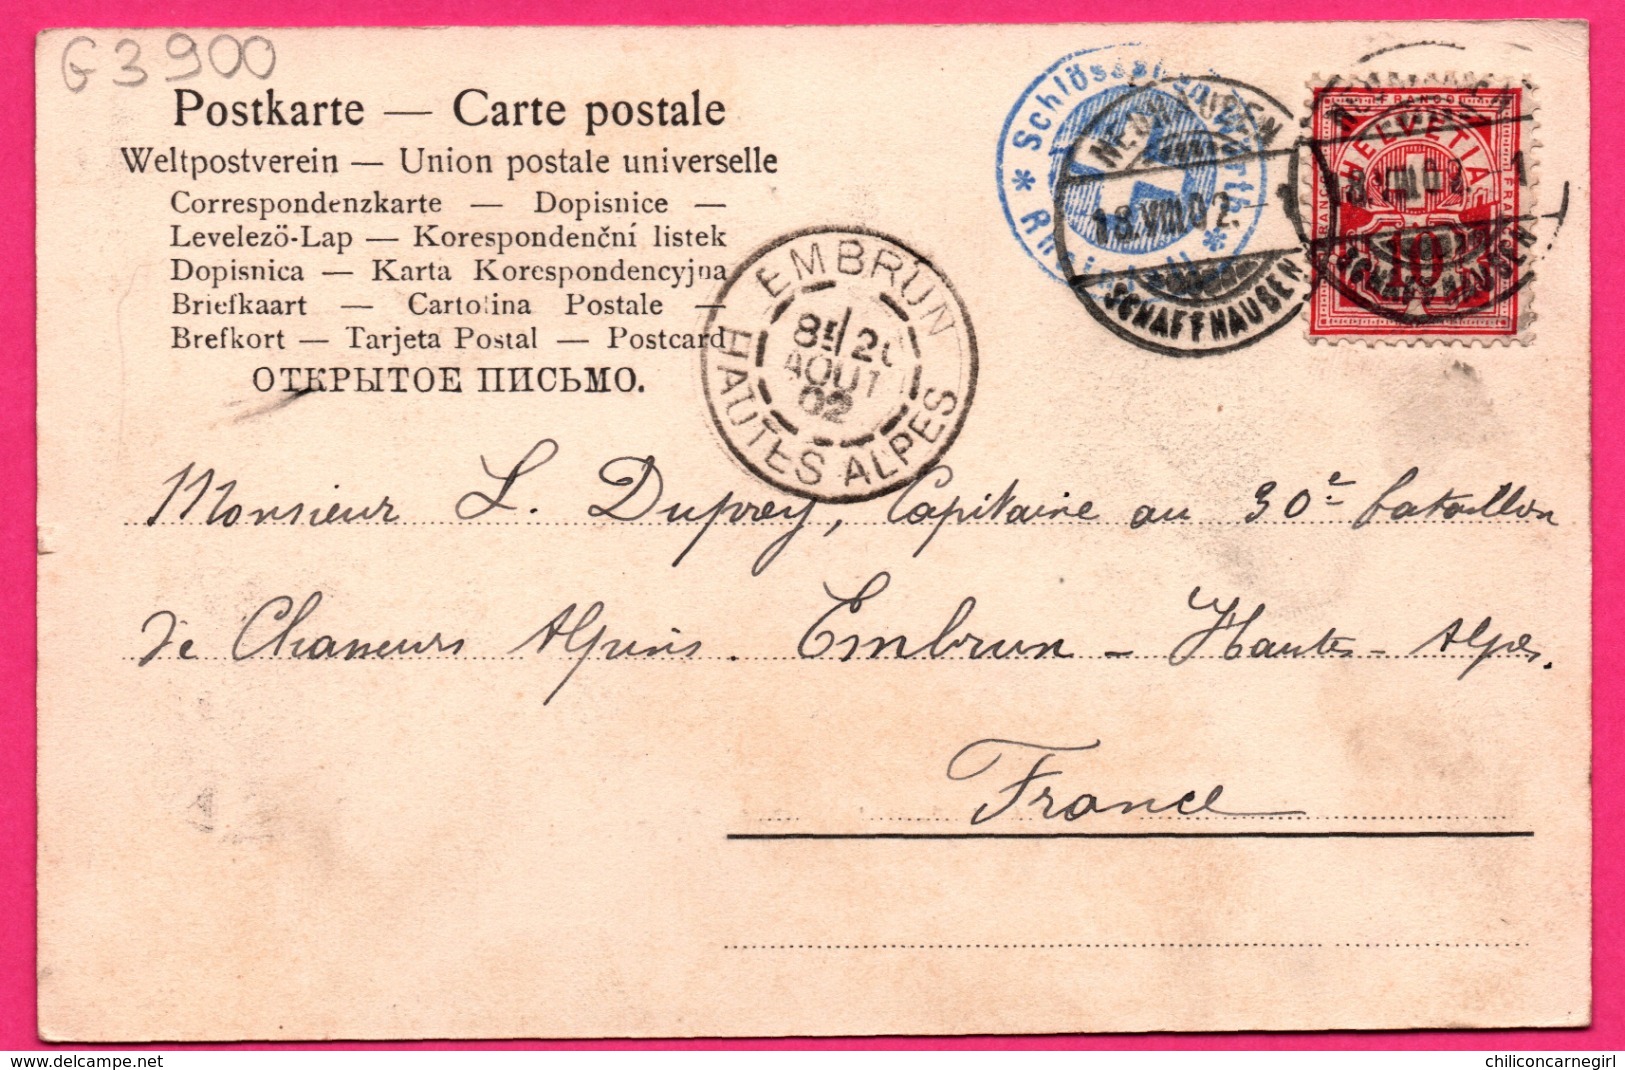 G 3900
Postkarte — Carte postale
Weltpostverein — Union postale universelle
Correspondenzkarte — Dopisnice —
Levelezö-Lap — Korespondenční listek
Dopisnica — Karta Korespondencyjna
Briefkaart — Cartolina Postale —
Brefkort — Tarjeta Postal — Postcard
ОТКРЫТОЕ ПИСЬМО.
EMBRUN
8E 20
AOUT
02
HAUTES ALPES
* Schlösschen Wörth *
Rheinfall
NEUHAUSEN
18.VIII.02.-1
SCHAFFHAUSEN
FRANCO
HELVETIA
FRANCO
FRANCO
10
NEUHAUSEN
18.VIII.02.-1
SCHAFFHAUSEN
Monsieur L. Duprey, Capitaine au 30e bataillon
de Chasseurs Alpins. Embrun - Hautes-Alpes.
France
delcampe.net
chiliconcarnegirl